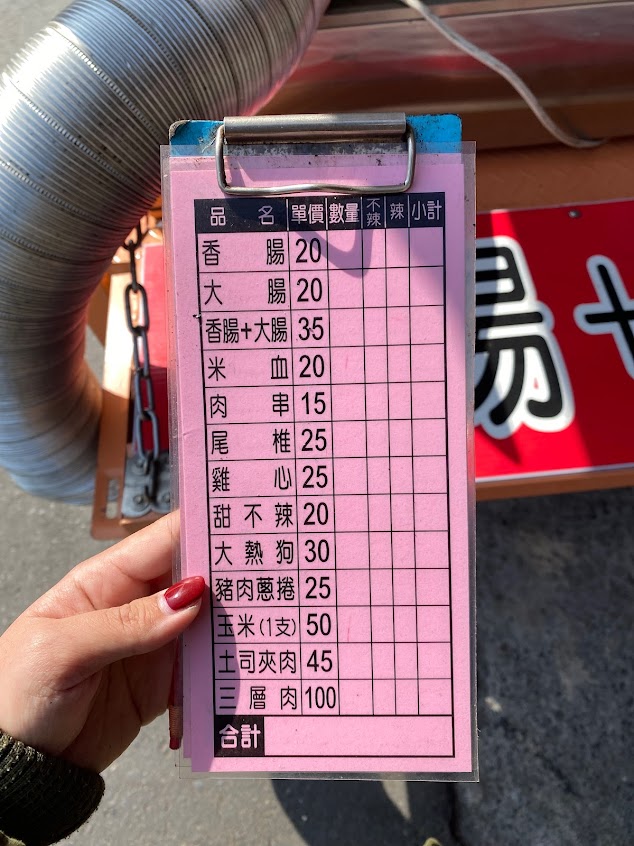 品名 單價 數量 不辣 辣 小計
香腸 20
大腸 20
香腸+大腸 35
米血 20
肉串 15
尾椎 25
雞心 25
甜不辣 20
大熱狗 30
豬肉蔥捲 25
玉米(1支) 50
土司夾肉 45
三層肉 100
合計
腸+